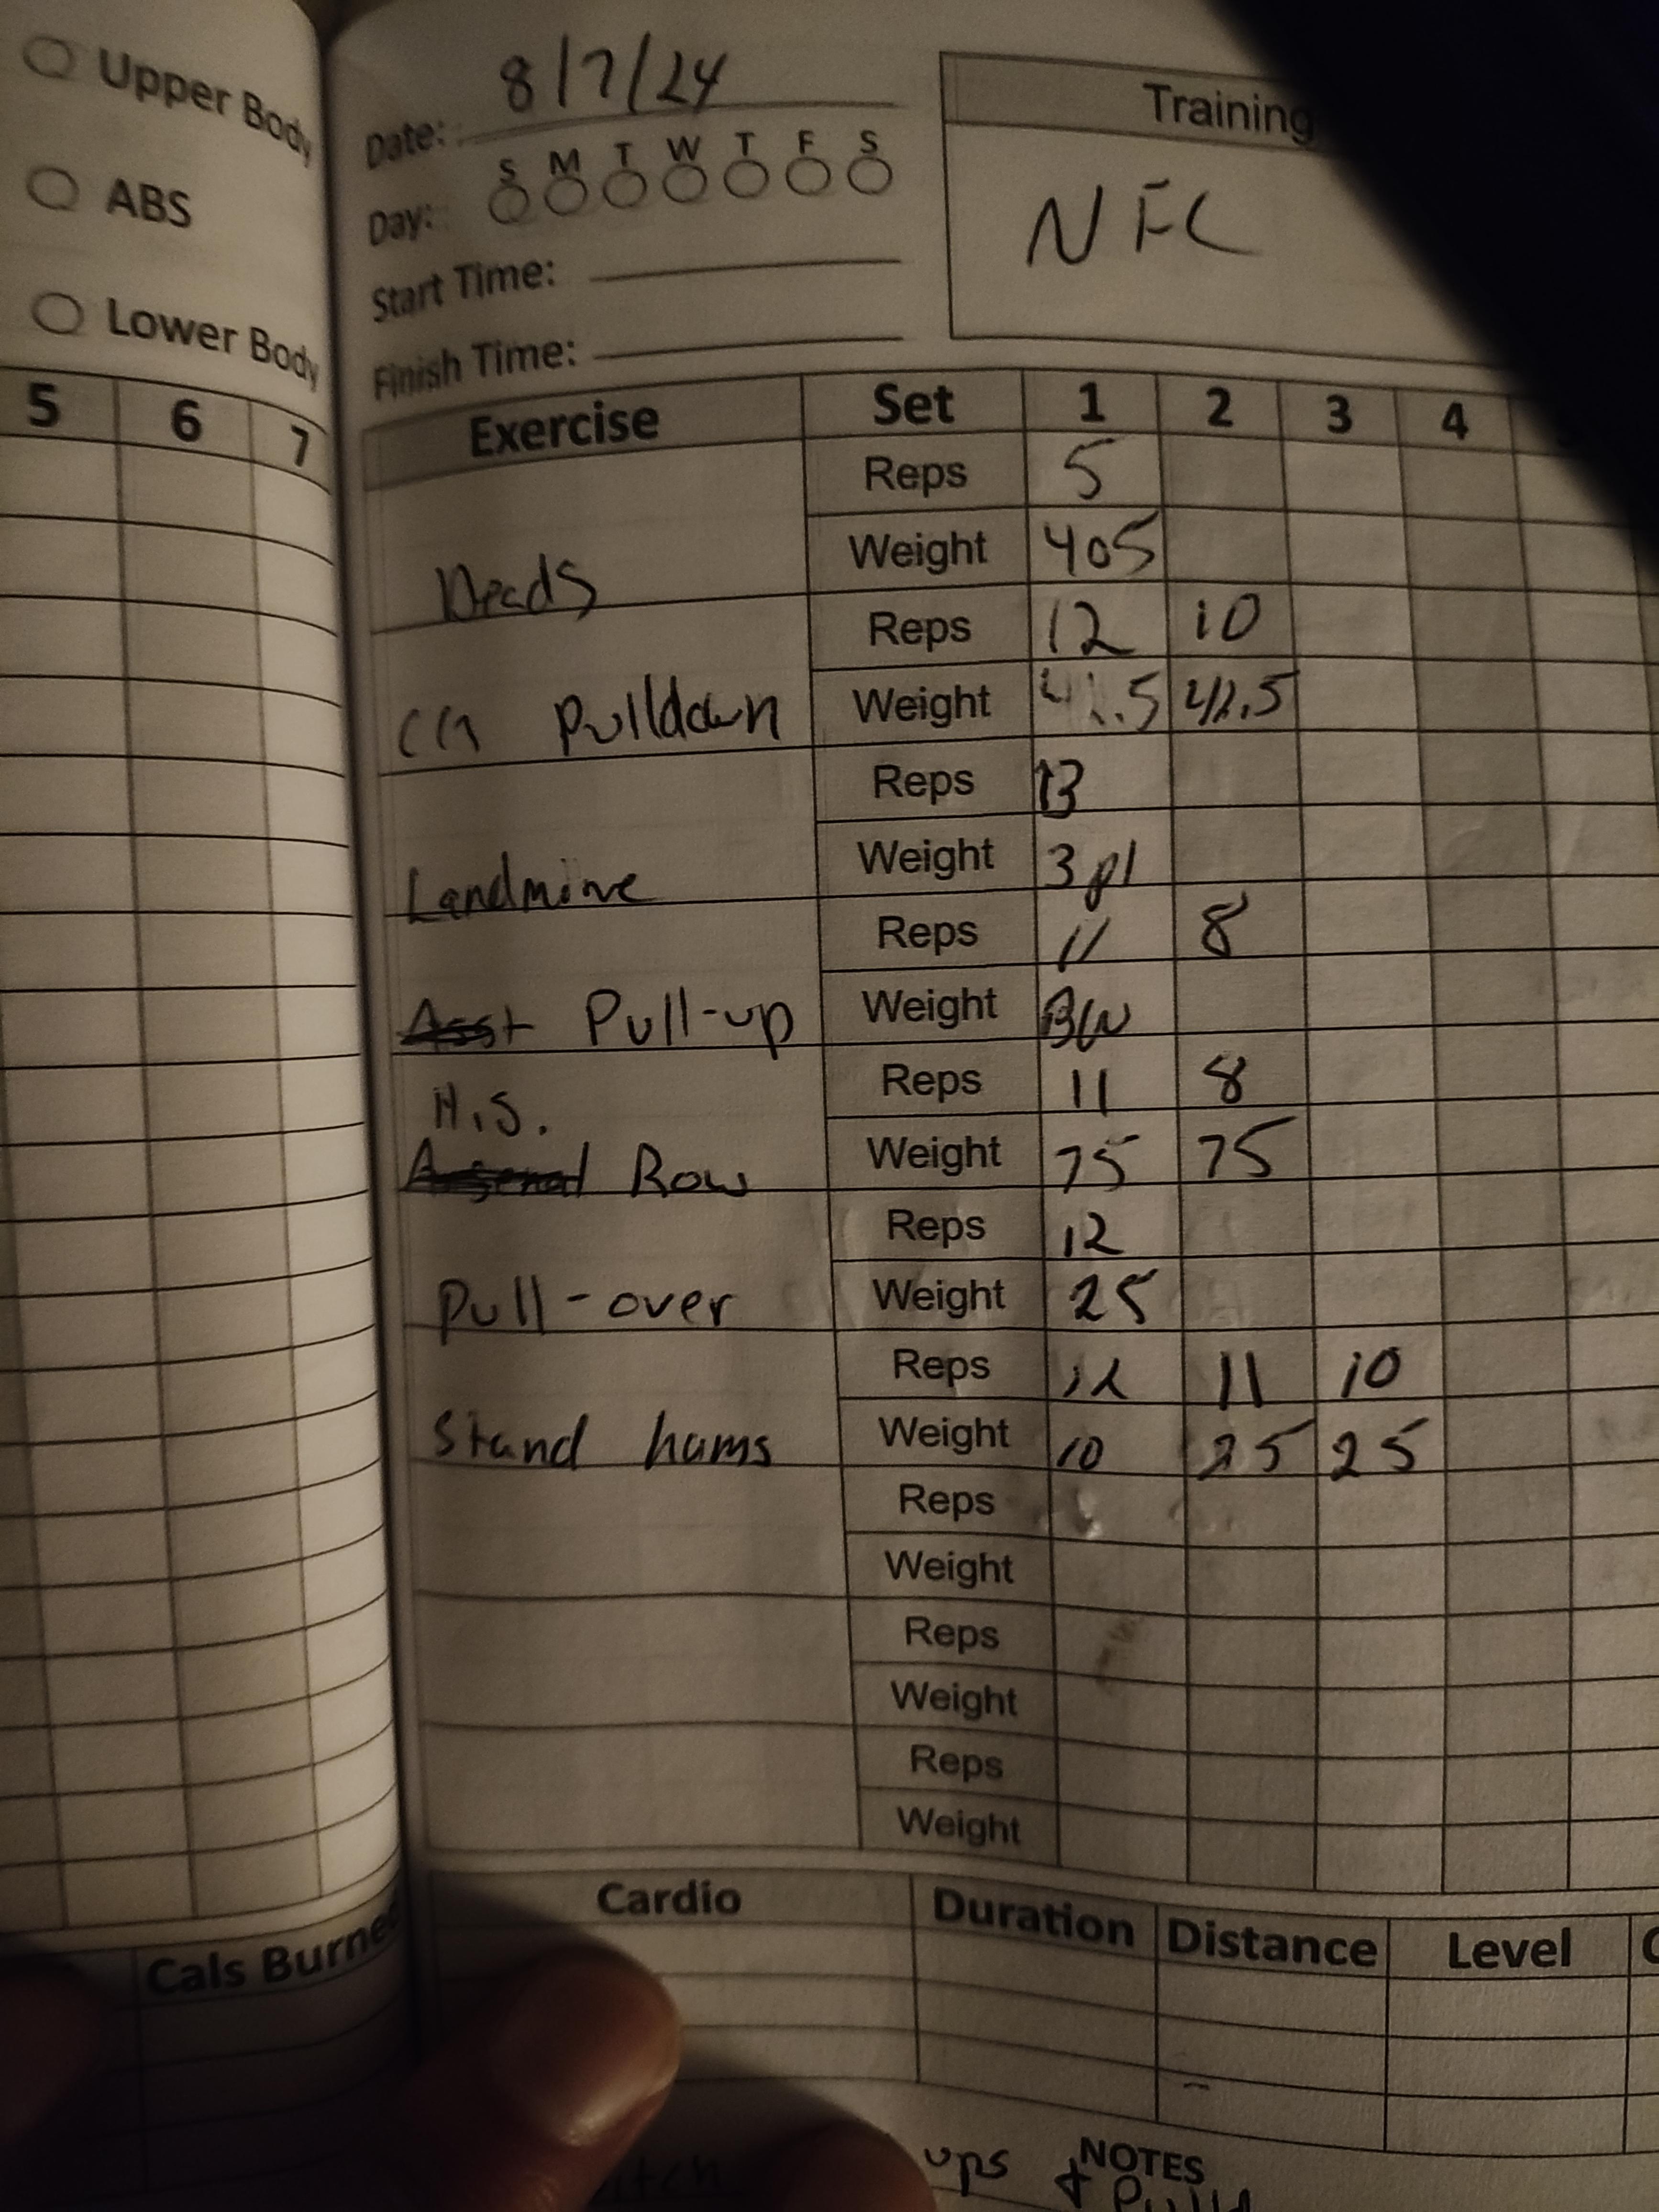 Upper Body
ABS
Lower Body
5 6 7
Cals Burne
Date: 8/7/24
Day: S M T W T F S
Start Time:
Finish Time:
Training
NFC
Exercise Set 1 2 3 4
Reps 5
Deads Weight 405
Reps 12 10
CG Pulldown Weight 42.5 42.5
Reps 13
Landmine Weight 3 pl
Reps 11 8
Asst Pull-up Weight BW
H.S. Reps 11 8
Arsenal Row Weight 75 75
Reps 12
Pull-over Weight 25
Reps 12 11 10
Stand hams Weight 10 25 25
Reps
Weight
Reps
Weight
Reps
Weight
Cardio Duration Distance Level
NOTES
ups +